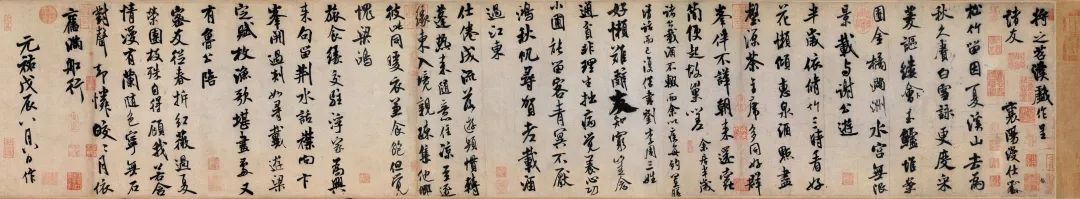 將之苕溪戲作呈
諸友 襄陽漫仕黻
松竹留因夏溪山去為
秋久賡白雪詠更度采
菱謳縷會玉鱸堆案
團金橘滿洲水宮無限
景載與謝公遊
半歲依脩竹三時看好
花懶傾惠泉酒點盡
壑源茶主席多同好群
峰伴不譁朝來還蠹
簡便起故巢嗟 余居半歲
諸公載酒不輟而余以疾每約置膳
清話而已復借書劉李周三姓
好懶難辭友知窮豈念
通貧非理生拙病覺養心功
小圃能留客青冥不厭
鴻秋帆尋賀老載酒
過江東
仕倦成流落遊頻慣轉
蓬熱來隨意住涼至逐
緣東入境親疎集他鄉
彼此同暖衣兼食飽但覺
愧梁鴻
旅食緣交駐浮家為興
來句留荊水話襟向卞
峯開過剡如尋戴遊梁
定賦枚漁歌堪畫處又
有魯公陪
密友從春拆紅薇過夏
榮團枝殊自得顧我若含
情漫有蘭隨色寧無石
對聲卻憐皎皎月依
舊滿船行
元祐戊辰八月八日作